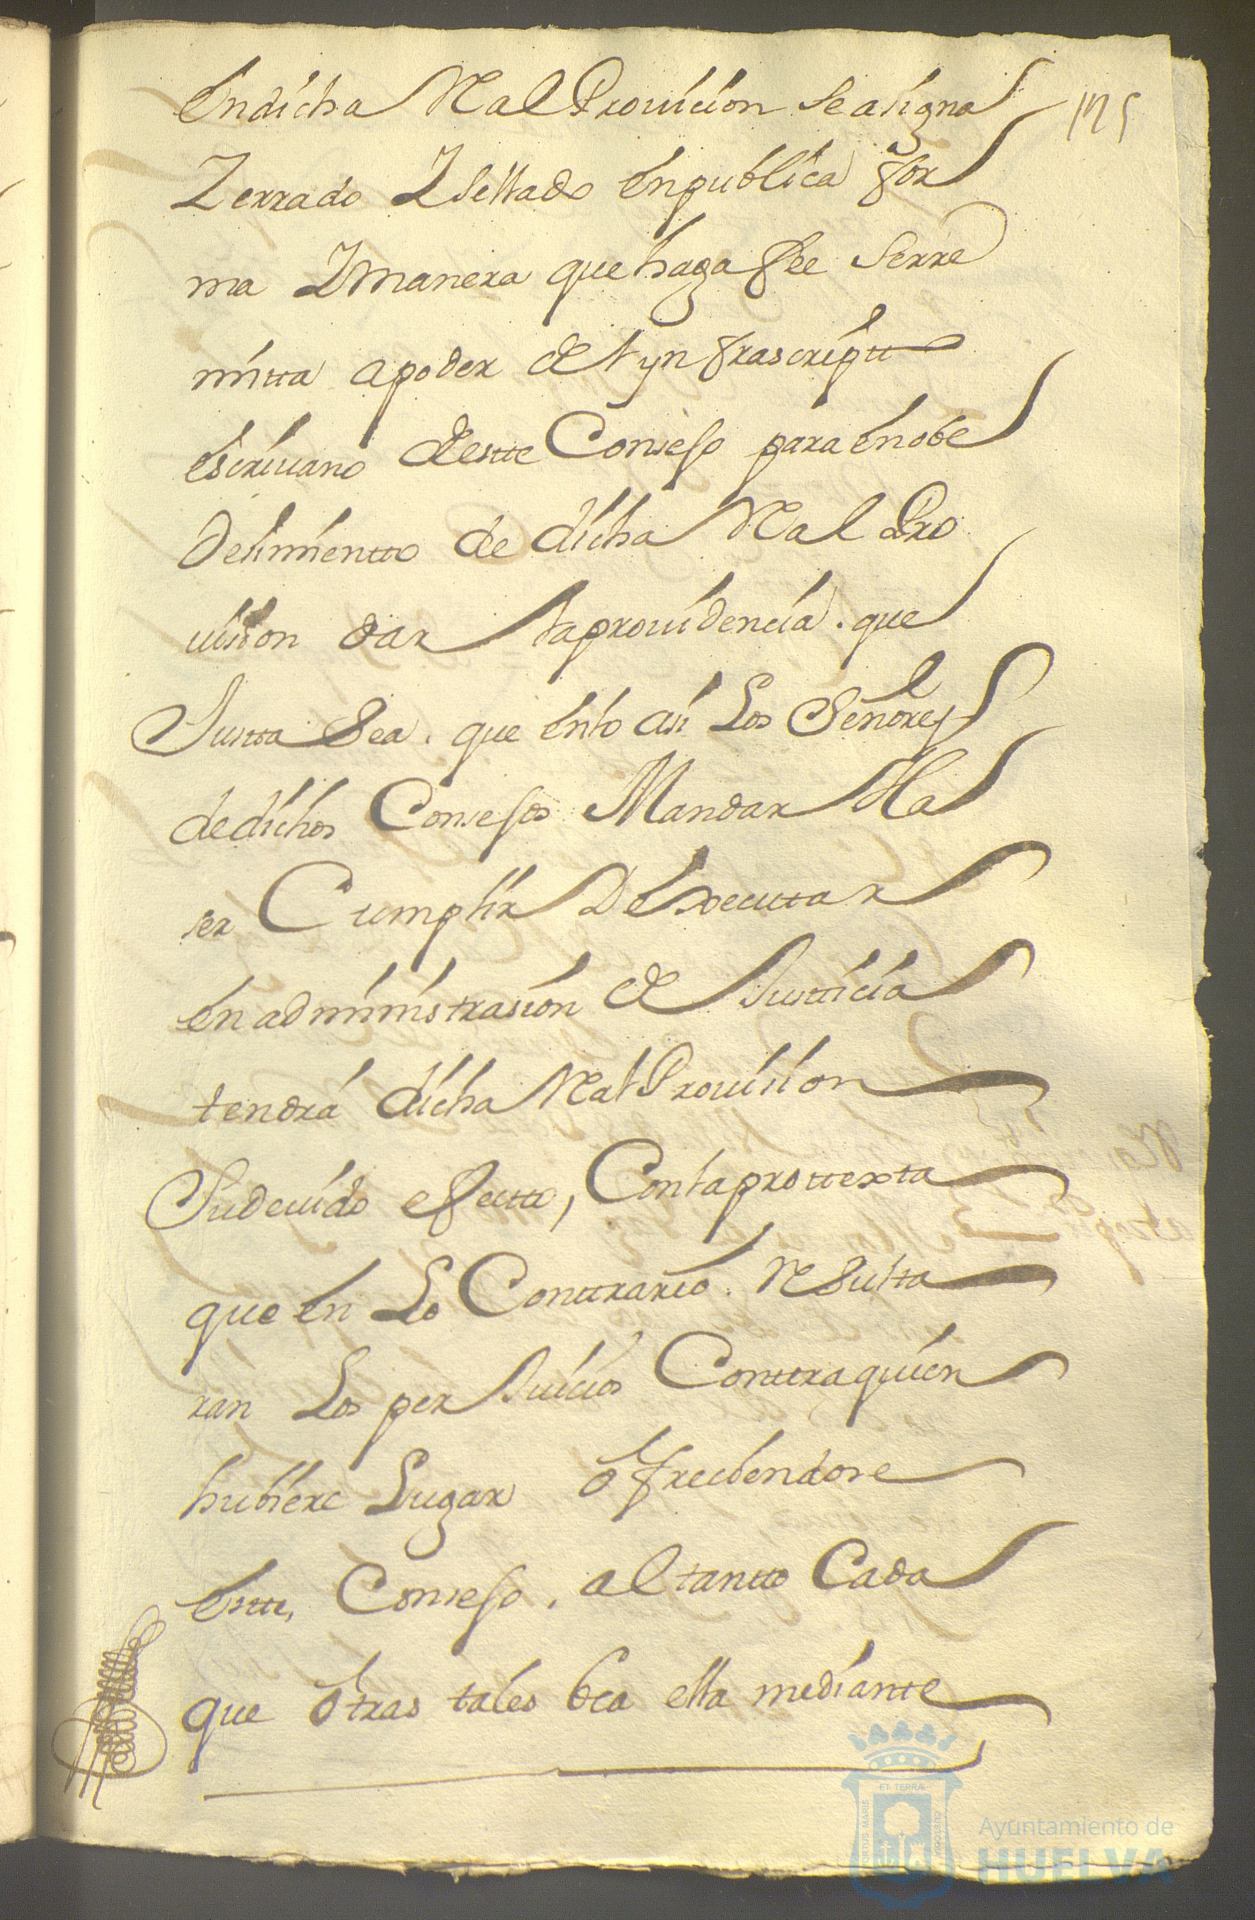 En dicha Real Provicion Se asigna
175
Zerrado Y Sellado en publica for
ma Y manera que haga fee Serre
mitta a poder del ynfrascriptto
escrivano de estte Consejo para en obe
desimientto de dicha Real Pro
uision dar la providencia. que
Justta Sea. que en lo asi Los Señores
de dichos Consejos Mandar Ha
ser Cumplir Y Executtar
en administrasion de Justticia
tendrá dicha Real Provision
Su devido efectto, Con la prottexta
que en Lo Conttrario. Resulta
ran Los perjuicios Conttra quien
hubiere Lugar ofreciendose
Estte, Consejo. al tantto Cada
que otras tales bea ella mediante
ET TERRÆ
Ayuntamiento de
HUELVA